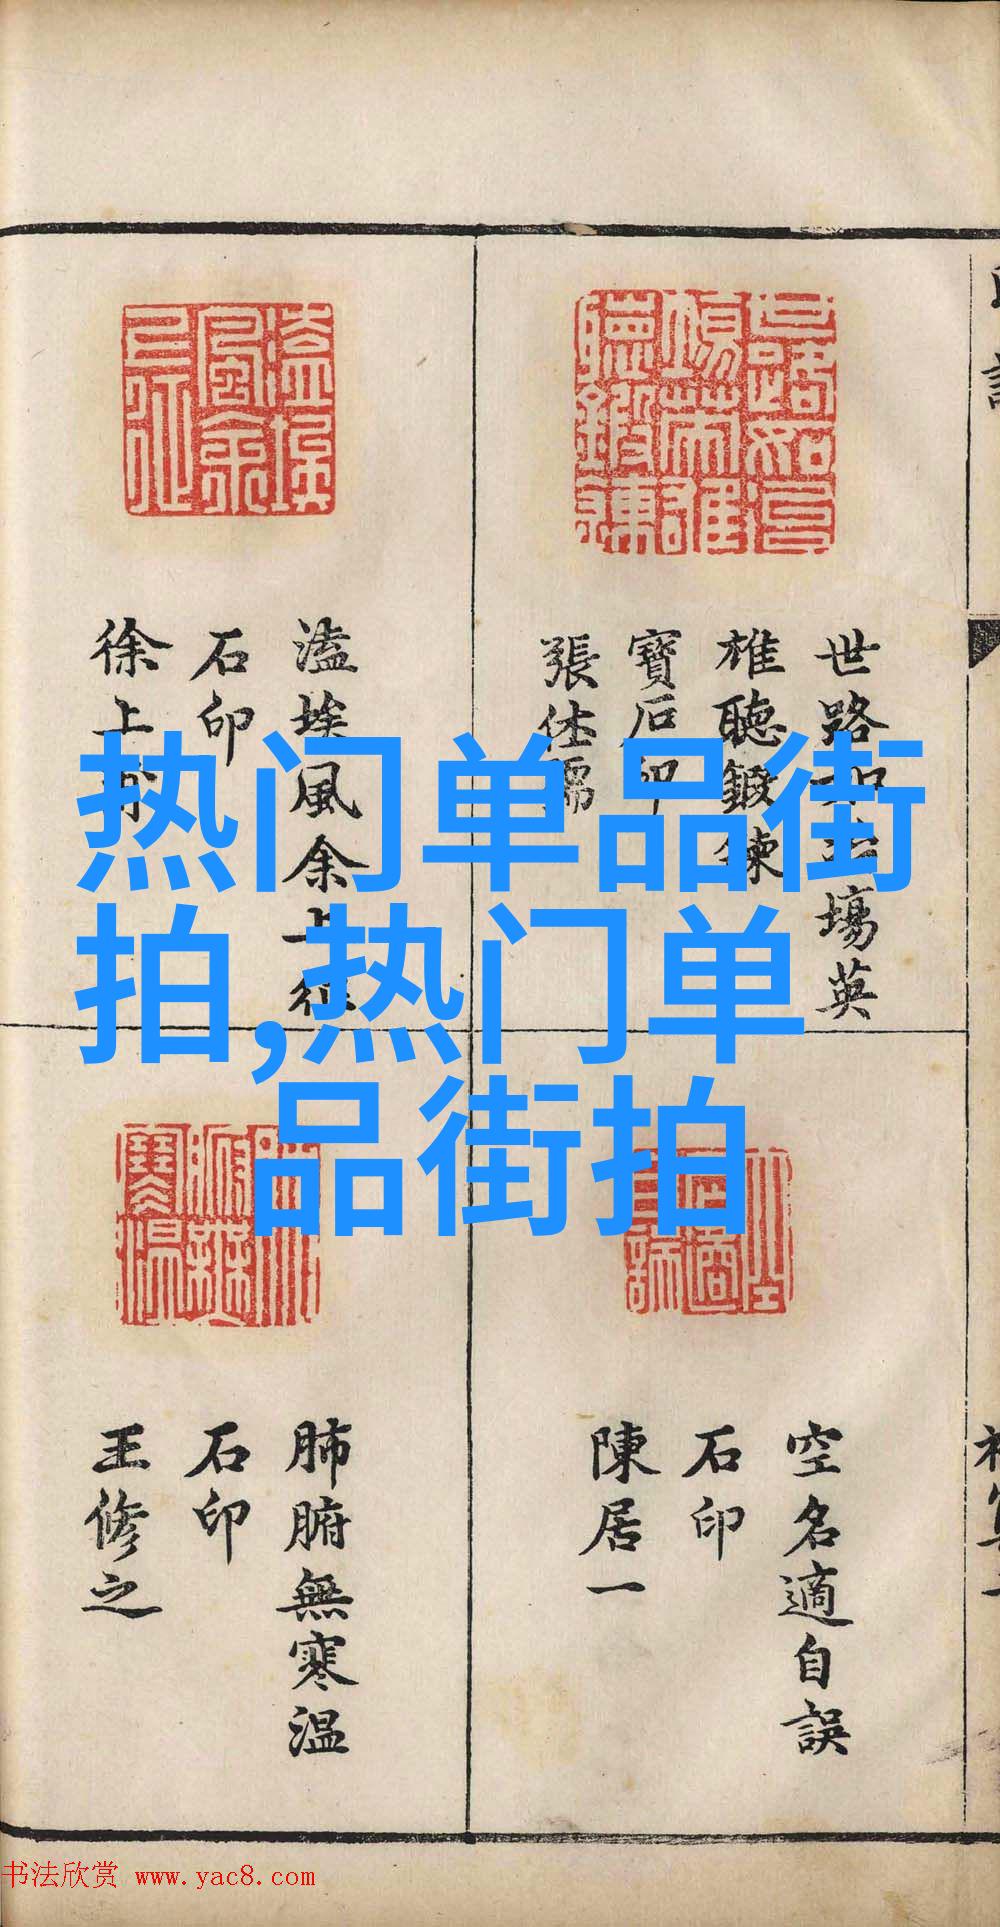 热门单品街
拍,热门单
品街拍
世路如場英
雄聽鍛鍊
寶石印
張仕
溘埃風余上征
石印
徐上
空名適自誤
石印
陳居一
肺腑無寒温
石印
王修之
书法欣赏 www.yac8.com